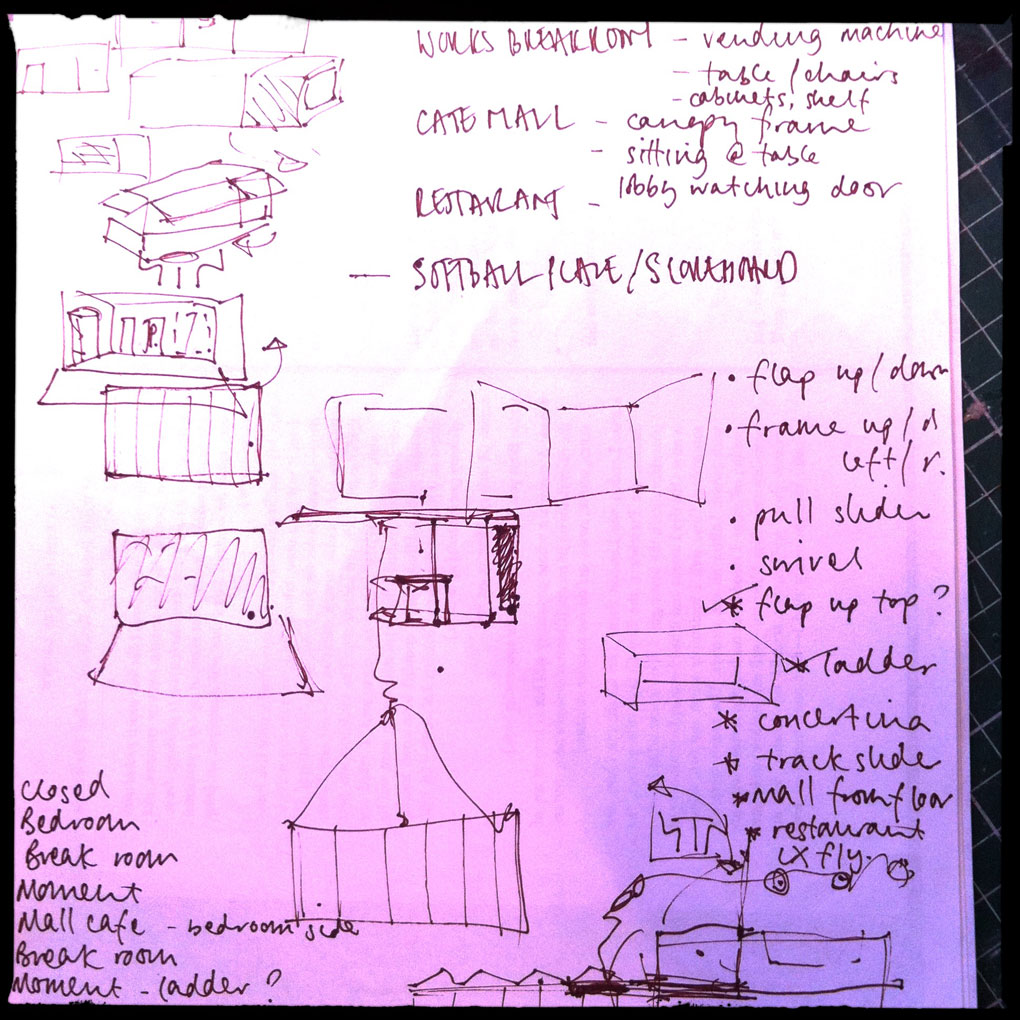 WORKS BREAKROOM - vending machine
- table/chairs
- cabinets, shelf
CAFE MALL - canopy frame
- sitting @ table
RESTAURANT - lobby watching door
— SOFTBALL /
• flap up/down
• frame up/d
left/r.
• pull slider
• swivel
✓* flap up top?
* ladder
* concertina
* track slider
* mall from floor
* restaurant
LX fly.
Closed
Bedroom
Break room
Moment
Mall cafe - bedroom side
Break room
Moment - ladder?